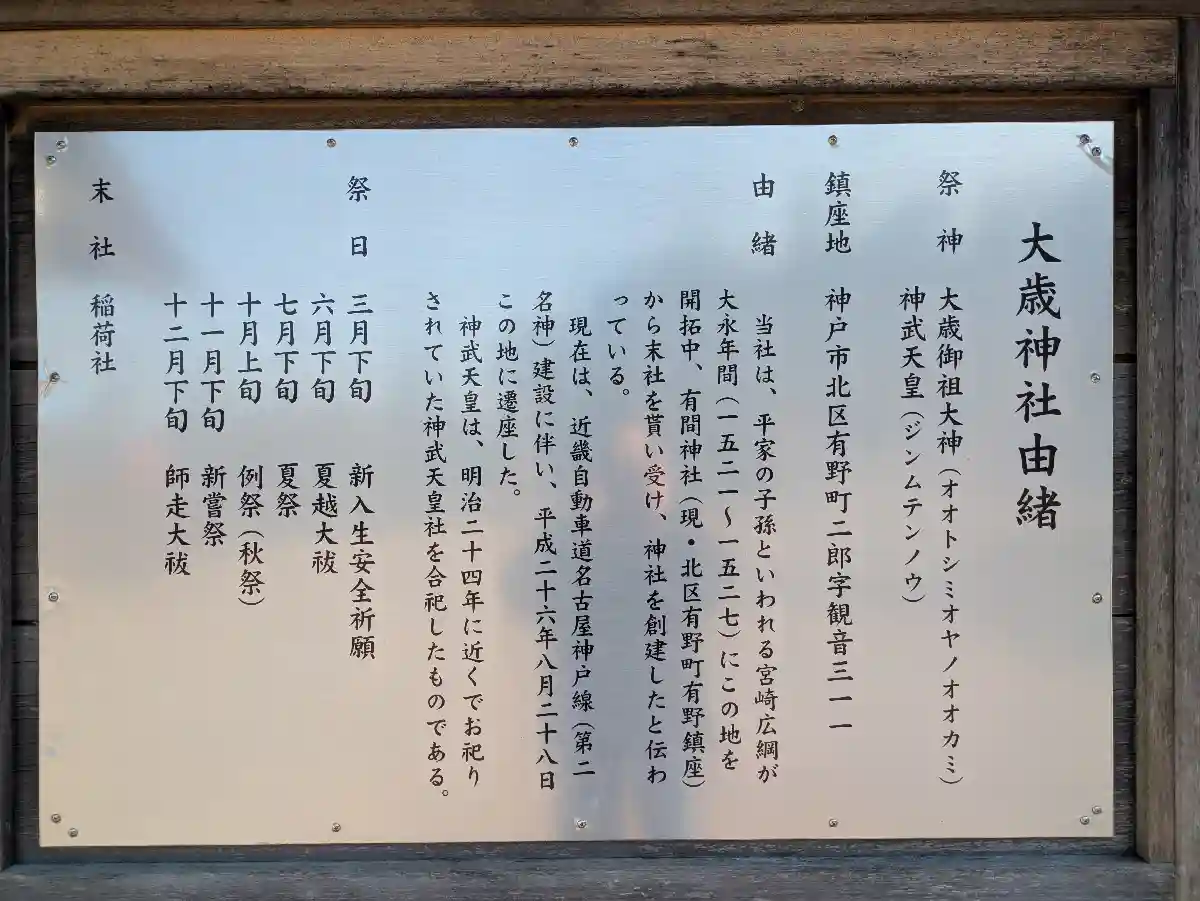 大歳神社由緒
祭神 大歳御祖大神（オオトシミオヤノオオカミ）
神武天皇（ジンムテンノウ）
鎮座地 神戸市北区有野町二郎字観音三一一
由緒 当社は、平家の子孫といわれる宮崎広綱が
大永年間（一五二一～一五二七）にこの地を
開拓中、有間神社（現・北区有野町有野鎮座）
から末社を貰い受け、神社を創建したと伝わ
っている。
現在は、近畿自動車道名古屋神戸線（第二
名神）建設に伴い、平成二十六年八月二十八日
この地に遷座した。
神武天皇は、明治二十四年に近くでお祀り
されていた神武天皇社を合祀したものである。
祭日 三月下旬 新入生安全祈願
六月下旬 夏越大祓
七月下旬 夏祭
十月上旬 例祭（秋祭）
十一月下旬 新嘗祭
十二月下旬 師走大祓
末社 稲荷社